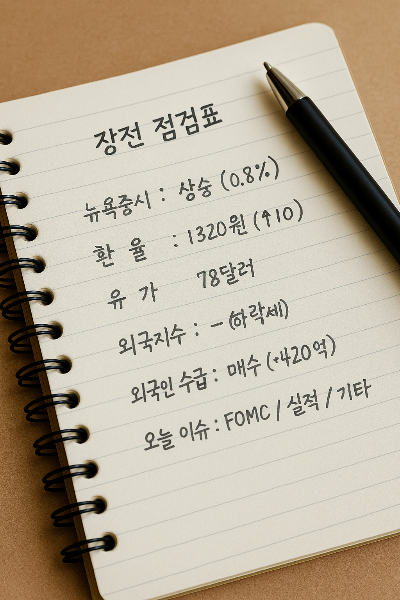 장전 점검표
뉴욕증시 : 상승 (0.8%)
환 율 : 1320원 (↑10)
유 가 78달러
외국지수 : - (하락세)
외국인 수급 : 매수 (+420억)
오늘 이슈 : FOMC / 실적 / 기타